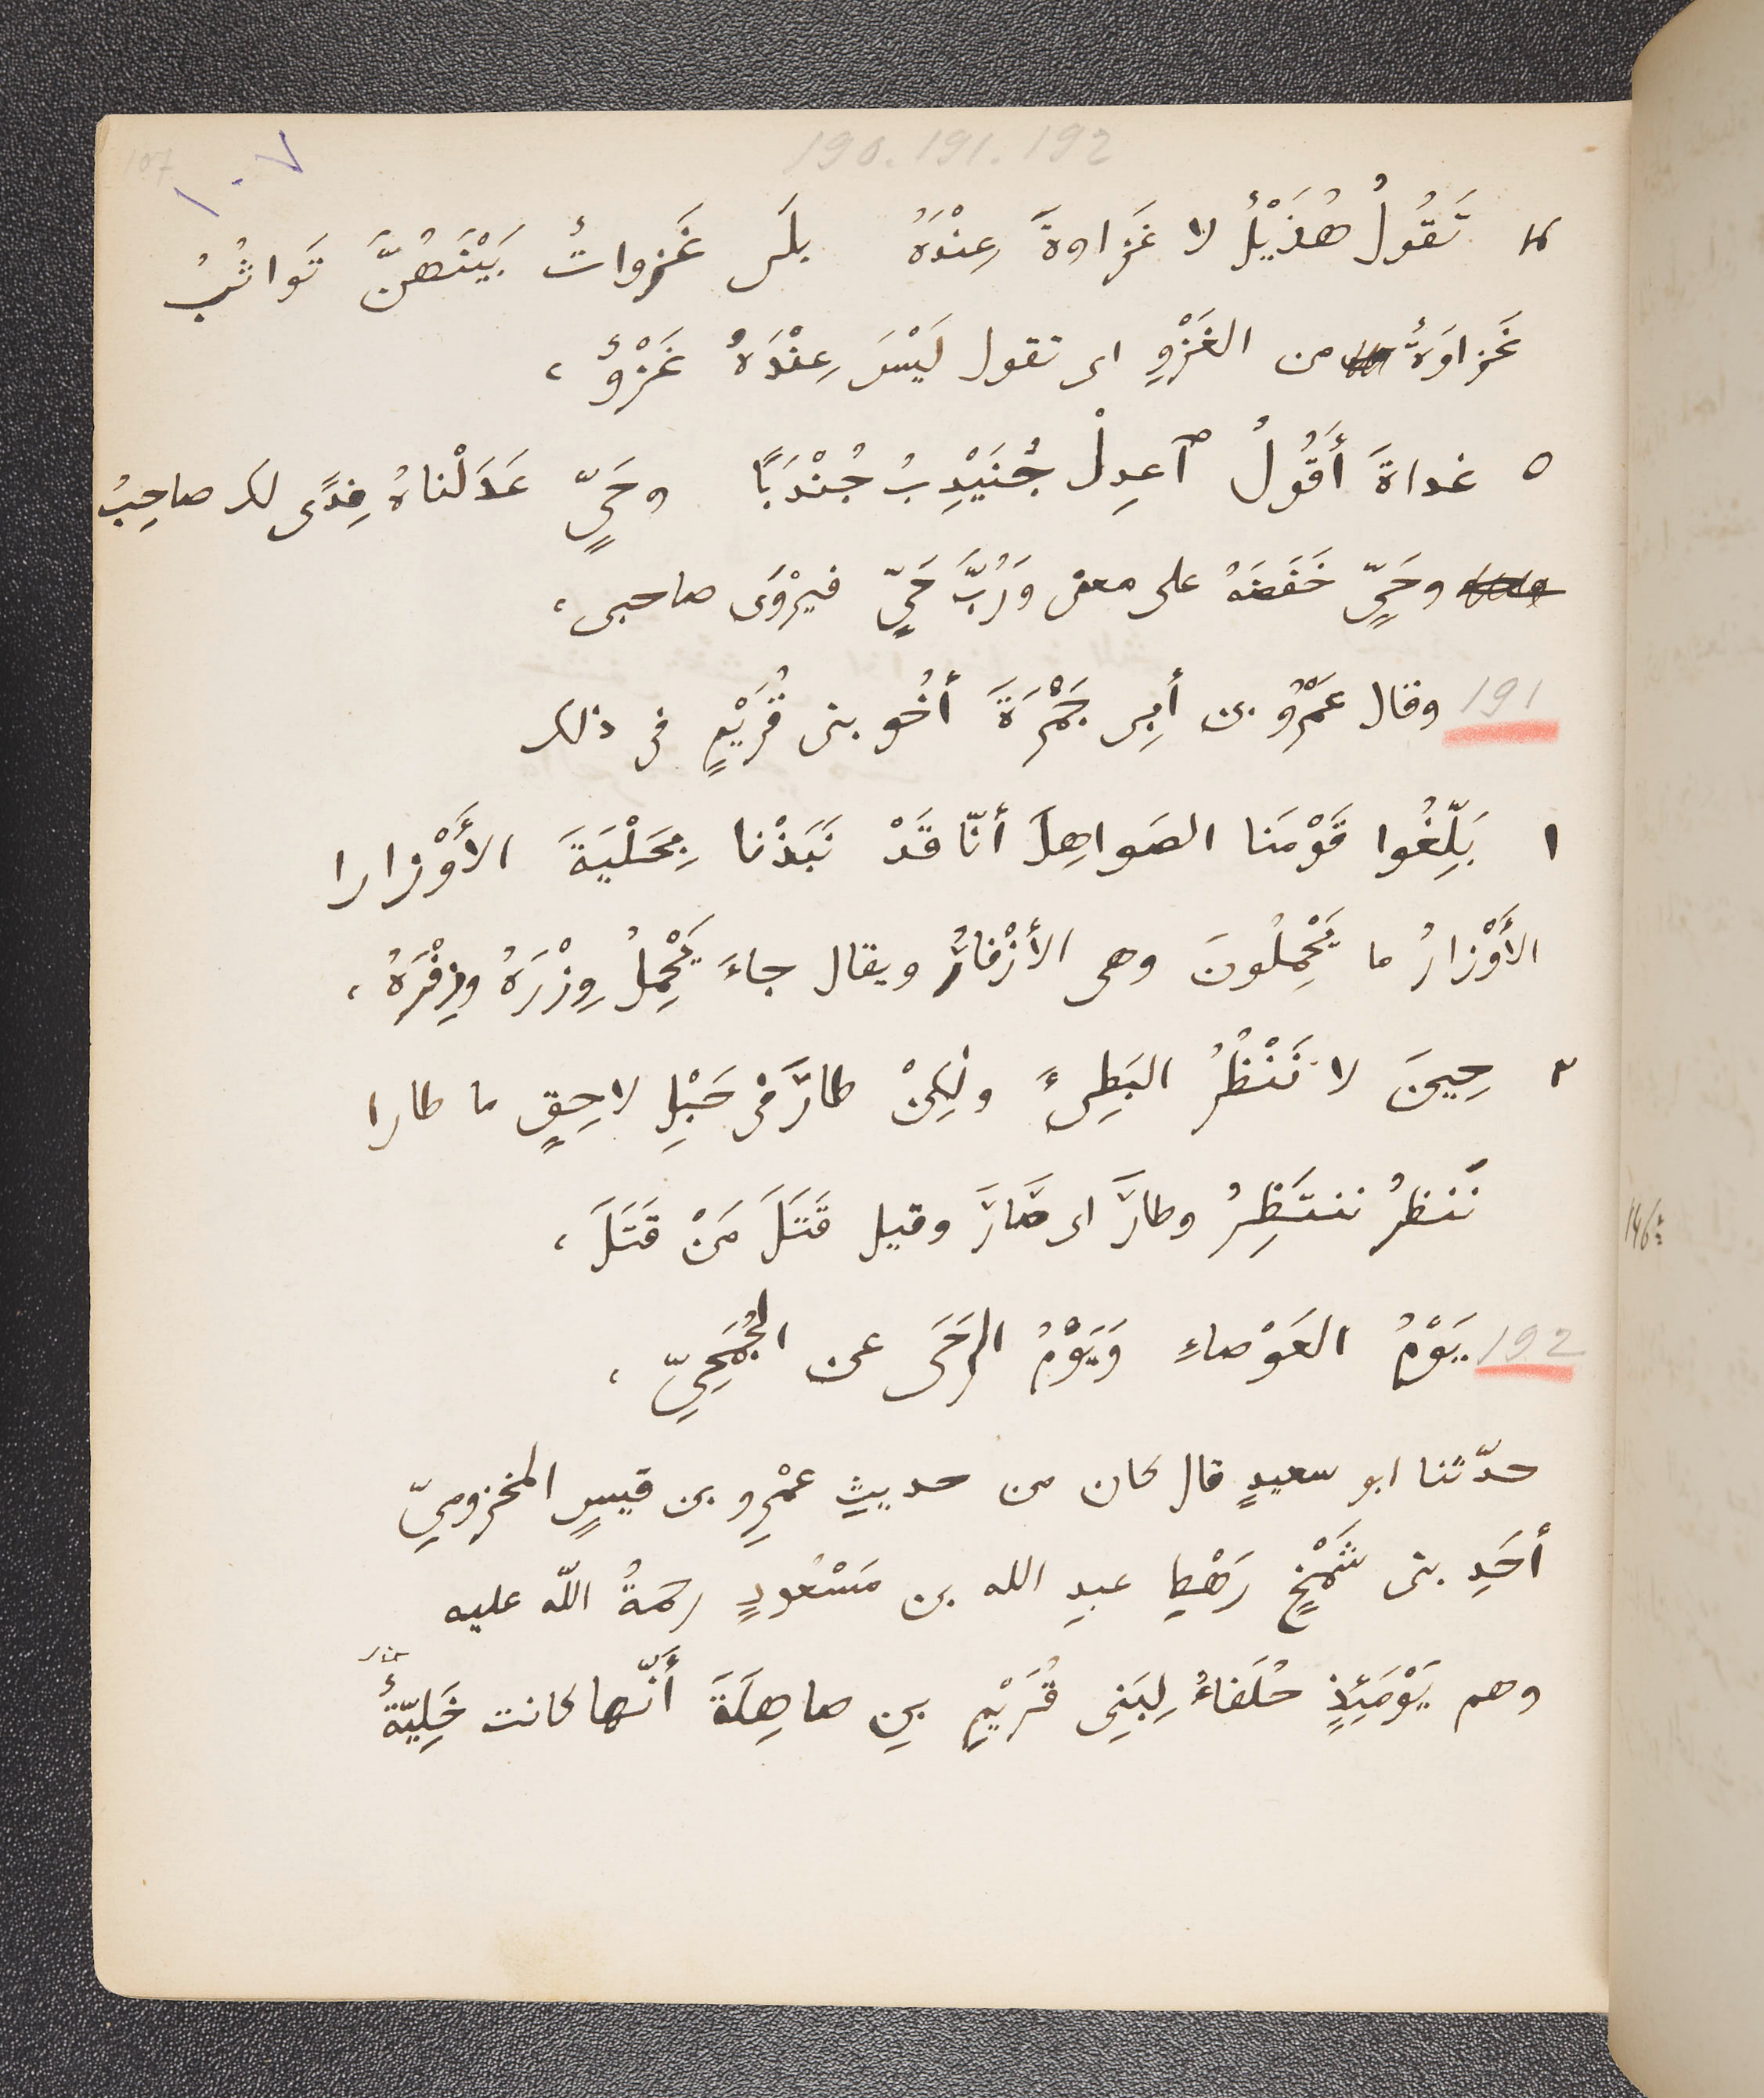 190.191.192
107
١٠٧
٤ تَقُولُ هُذَيْلٌ لا غَزاوةَ عِنْدَهُ بلَى غَزَواتٌ بَيْنَهُنَّ تَواثُبُ
غَزاوَةٌ من الغَزْوِ اى تقول لَيْسَ عِنْدَهُ غَزْوٌ ،
٥ غداةَ أَقُولُ ٱعدِلْ جُنَيْدِبُ جُنْدَبًا وحَيٍّ عَدَلْناهُ فِدًى لك صاحِبُ
وحَيٍّ خَفَضَهُ على معنى وَرُبَّ حَيٍّ فيُرْوَى صاحبى ،
191 وقال عَمْرُو بن أبِى جَمْرَةَ أخُو بنى قُرَيْمٍ فى ذلك
١ بَلِّغُوا قَوْمَنا الصَواهِلَ أنّا قَدْ نَبَذْنا بِحَلْيَةَ الأَوْزارا
الأَوْزارُ ما يَحْمِلُونَ وهى الأزْفارُ ويقال جاءَ يَحْمِلُ وِزْرَهُ وزِفْرَهُ ،
٢ حِينَ لا نَنْظُرُ البَطِىءَ ولٰكِنْ طارَ فى حَبْلِ لاحِقٍ ما طارا
نَنظرُ ننتَظِرُ وطارَ اى صَارَ وقيل قَتَلَ مَنْ قَتَلَ ،
146
192 يَوْمُ العَوْصاءِ وَيَوْمُ الرَحَى عن الجُمَحِيِّ ،
حدّثنا ابو سعيدٍ قال كان من حديثِ عَمْرِو بن قيسٍ المخزوميّ
أحَدِ بنى شَمْخٍ رَهْطِ عبدِ الله بن مَسْعُودٍ رحمةُ اللّه عليه
وهم يَوْمَئِذٍ حُلَفاءُ لِبَنِى قُرَيْمِ بنِ صاهِلَةَ أَنّها كانت خَلِيّةٌ